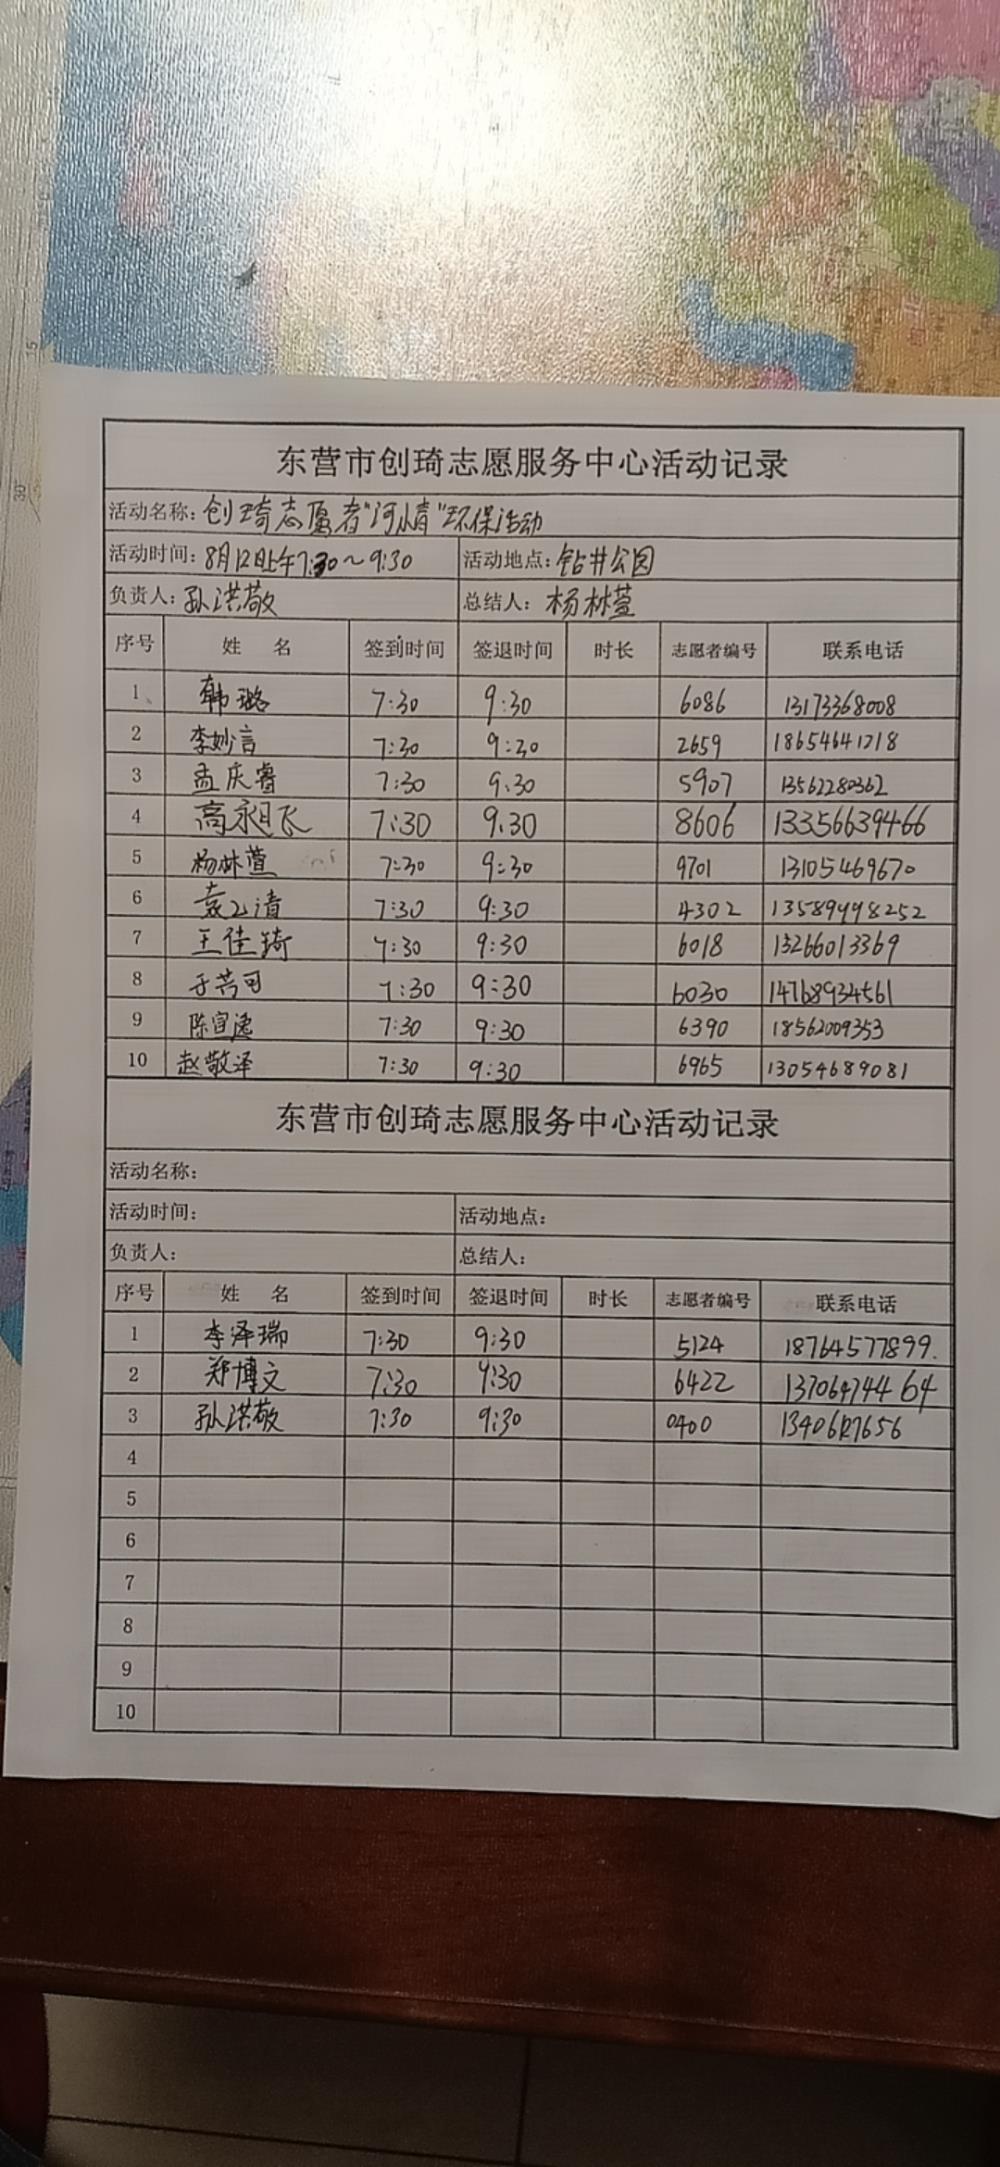 东营市创琦志愿服务中心活动记录
活动名称:创琦志愿者"河小青"环保活动
活动时间:8月12日上午7:30~9:30 活动地点:钻井公园
负责人:孙洪敬 总结人:杨林萱
序号 姓 名 签到时间 签退时间 时长 志愿者编号 联系电话
1 韩璐 7:30 9:30 6086 13173368008
2 李妙言 7:30 9:30 2659 18654641218
3 孟庆睿 7:30 9.30 5907 13562280362
4 高永飞 7:30 9.30 8606 13356639466
5 杨林萱 7:30 9:30 9701 13105469670
6 袁乙清 7:30 9:30 4302 13589998252
7 王佳琦 7:30 9:30 6018 13266013369
8 于芮可 7:30 9:30 6030 14768934561
9 陈宣逸 7:30 9:30 6390 18562009353
10 赵敬泽 7:30 9:30 6965 13054689081
东营市创琦志愿服务中心活动记录
活动名称:
活动时间: 活动地点:
负责人: 总结人:
序号 姓 名 签到时间 签退时间 时长 志愿者编号 联系电话
1 李泽瑞 7:30 9:30 5124 18764577899.
2 郑博文 7:30 9:30 6422 13706474464
3 孙洪敬 7:30 9:30 0400
4
5
6
7
8
9
10